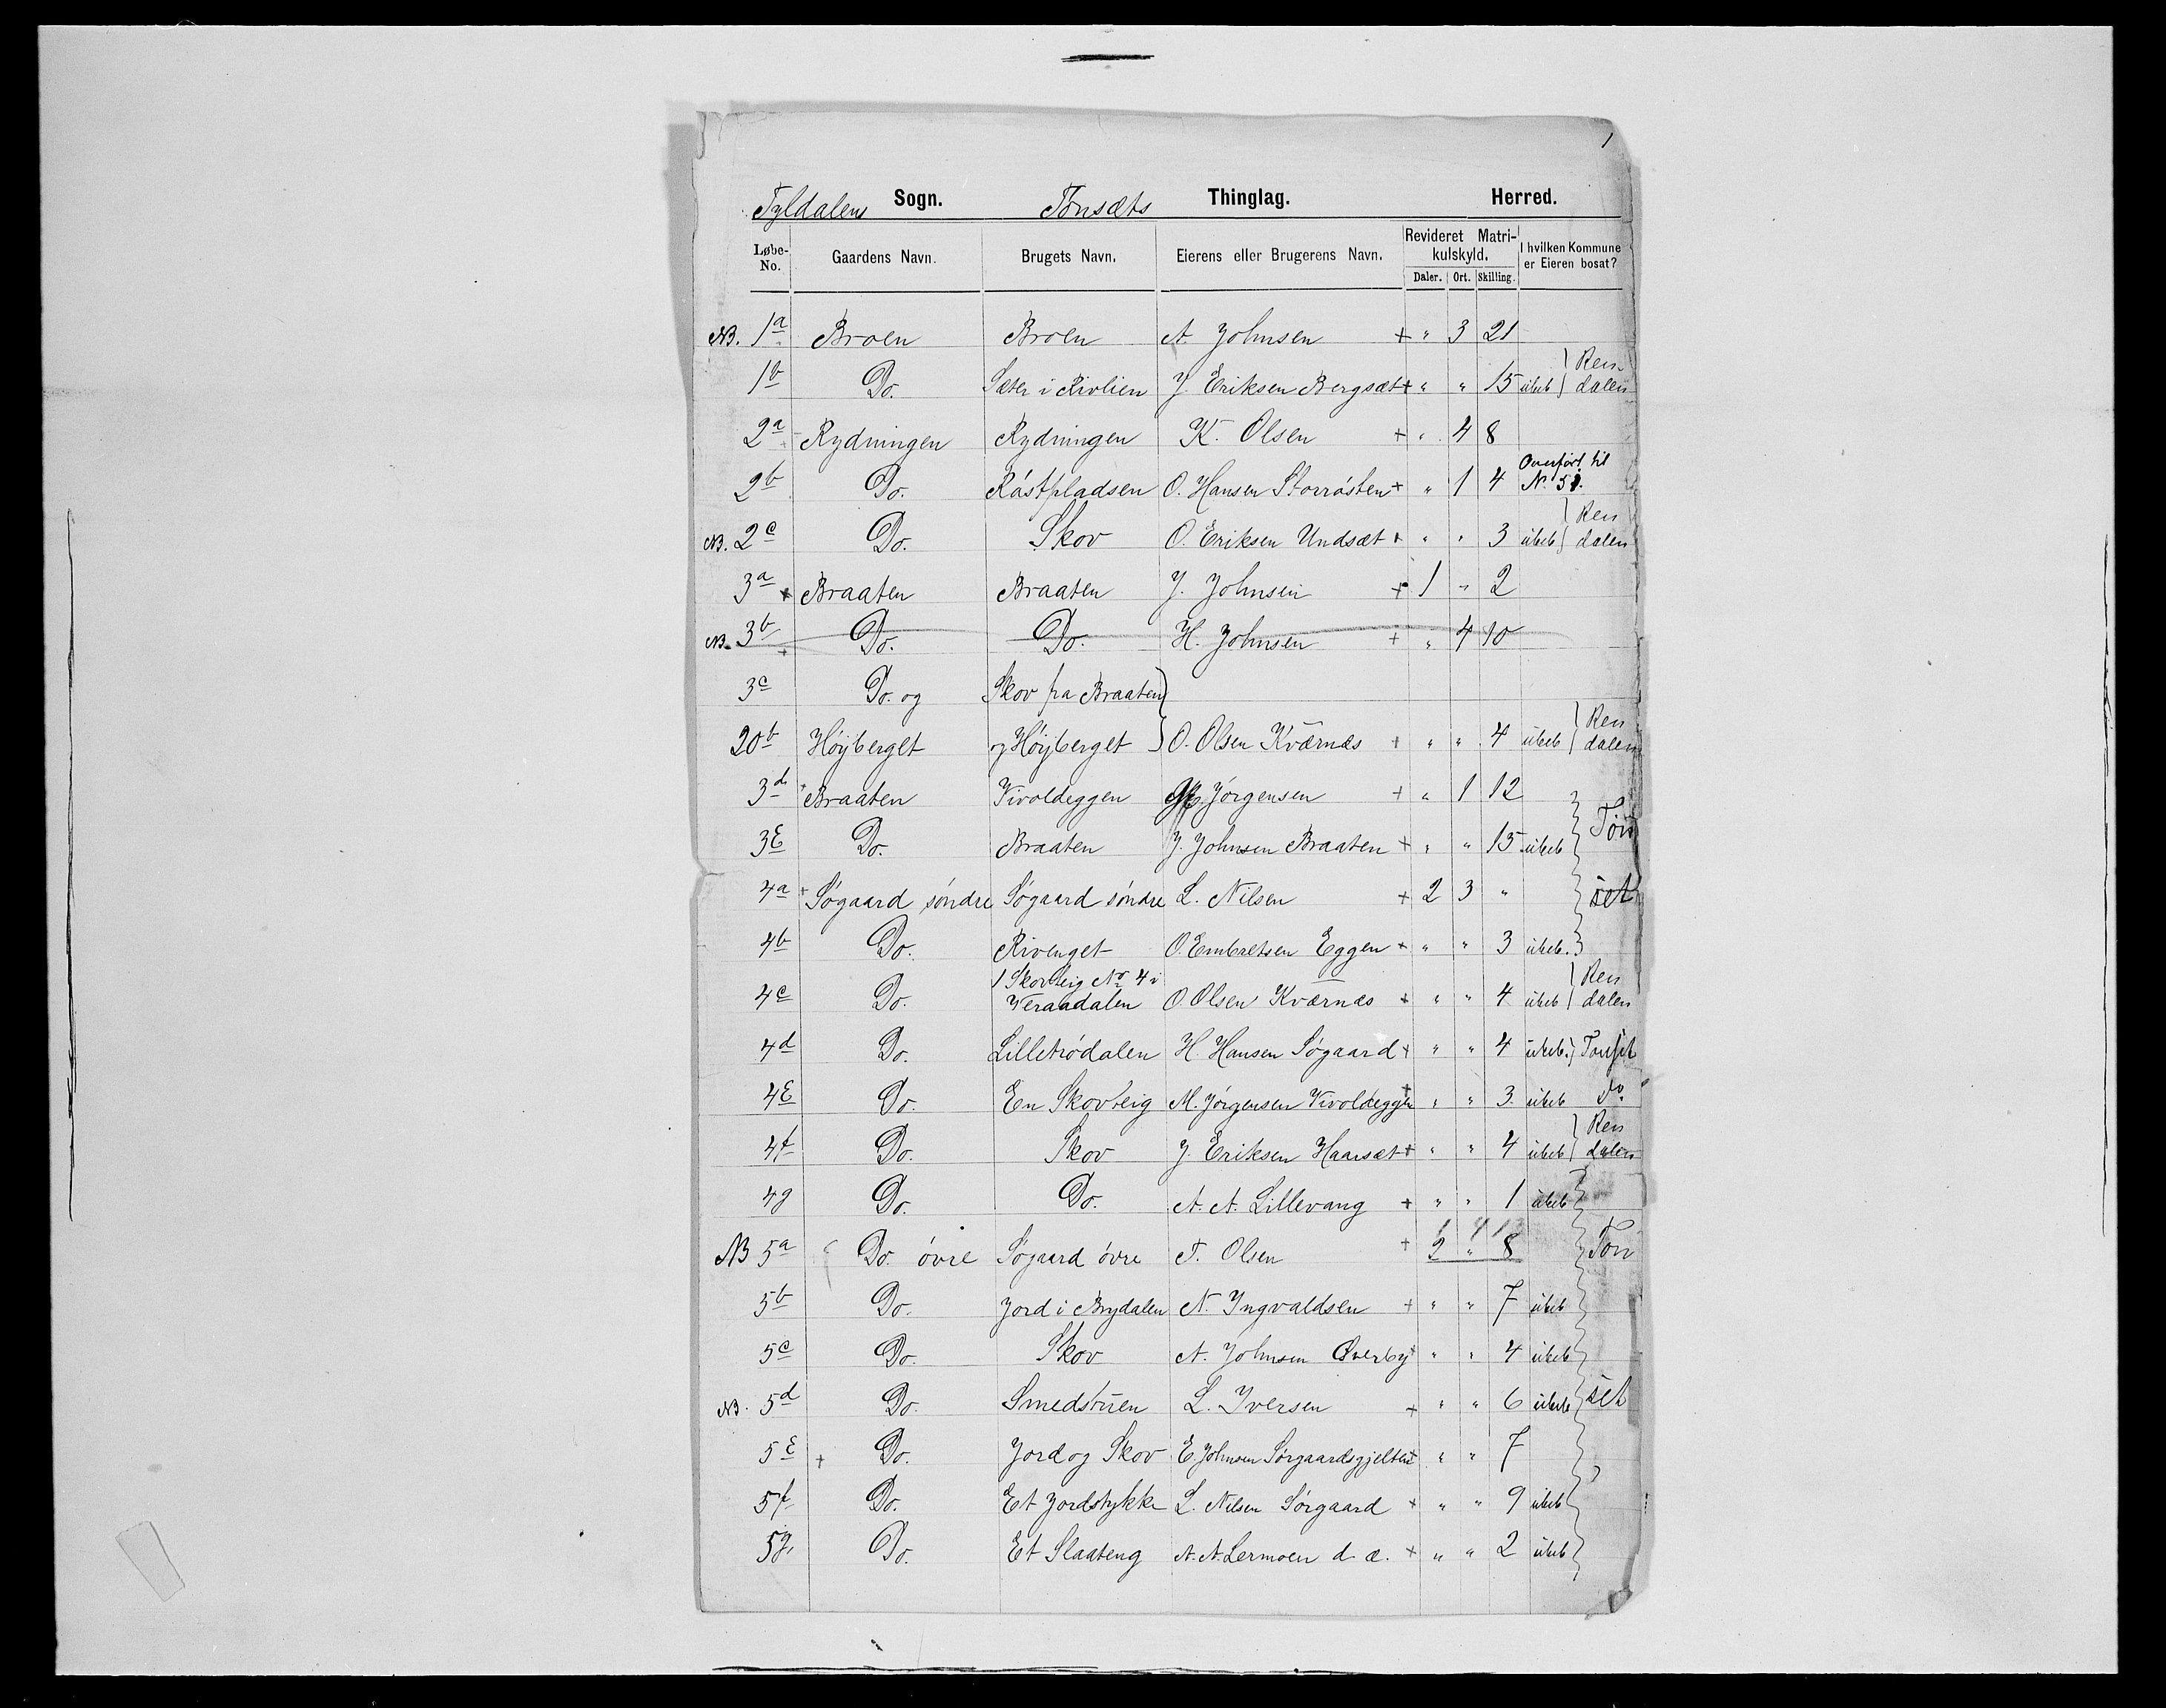 1
Tyldalens Sogn. Tønsæts Thinglag. Herred.
Løbe-No. Gaardens Navn. Brugets Navn. Eierens eller Brugerens Navn. Revideret Matrikulskyld. I hvilken Kommune er Eieren bosat?
Daler. Ort. Skilling.
NB. 1a Broen Broen A. Johnsen + " 3 21
1b Do. Sæter i Rivlien J. Eriksen Bergsæt + " " 15 ubeb } Rendalen
2a Rydningen Rydningen K. Olsen + " 4 8
2b Do. Råstpladsen O. Hansen Storrøsten + " 1 4 Overført til No 51.
NB. 2c Do. Skov O. Eriksen Undsæt + " " 3 ubeb } Rendalen
3a + Braaten Braaten J. Johnsen + 1 " 2
NB. 3b + Do. Do. H. Johnsen + " 4 10
3c Do. og Skov fra Braaten }
20b Høyberget og Høyberget } O. Olsen Kværnæs + " " 4 ubeb } Rendalen
3d + Braaten Kivoldeggen Jørgensen + " 1 12
3E Do. Braaten J. Johnsen Braaten + " " 15 ubeb } Tøn
4a + Søgaard søndre Søgaard søndre L. Nilsen + 2 3 " set
4b Do. Rivenget O. Embretsen Eggen + " " 3 ubeb. }
4c Do. 1 Skovteig No 4 i Veraadalen O. Olsen Kværnæs + " " 4 ubeb } Rendalen
4d Do. Lilletrødalen H. Hansen Søgaard + " " 4 ubeb. } Tonset
4E Do. En Skovteig M. Jørgensen Kivoldeggen + " " 3 ubeb Do
4f Do. Skov J. Eriksen Haarsæt + " " 4 ubeb } Rendalen
4g Do. Do. A. A. Lillevang + " " 1 ubeb }
NB 5a Do. øvre Søgaard øvre T. Olsen + 2 " 8 } Ton
5b Do. Jord i Brydalen N. Yngvaldsen + " " 7 ubeb
5c Do. Skov A. Johnsen Øverby + " " 4 ubeb
NB. 5d Do. Smedstuen L. Iversen + " " 6 ubeb } set
5E + Do. Jord og Skov E. Johnsen Sørgaardsgjelten + " " 7
5f Do. Et Jordstykke L. Nilsen Sørgaard + " " 9 ubeb
5g. Do. Et Slaateng A. A. Lermoen d. æ. + " " 2 ubeb }